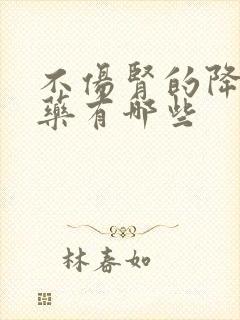 不傷腎的降
藥有哪些
林春如